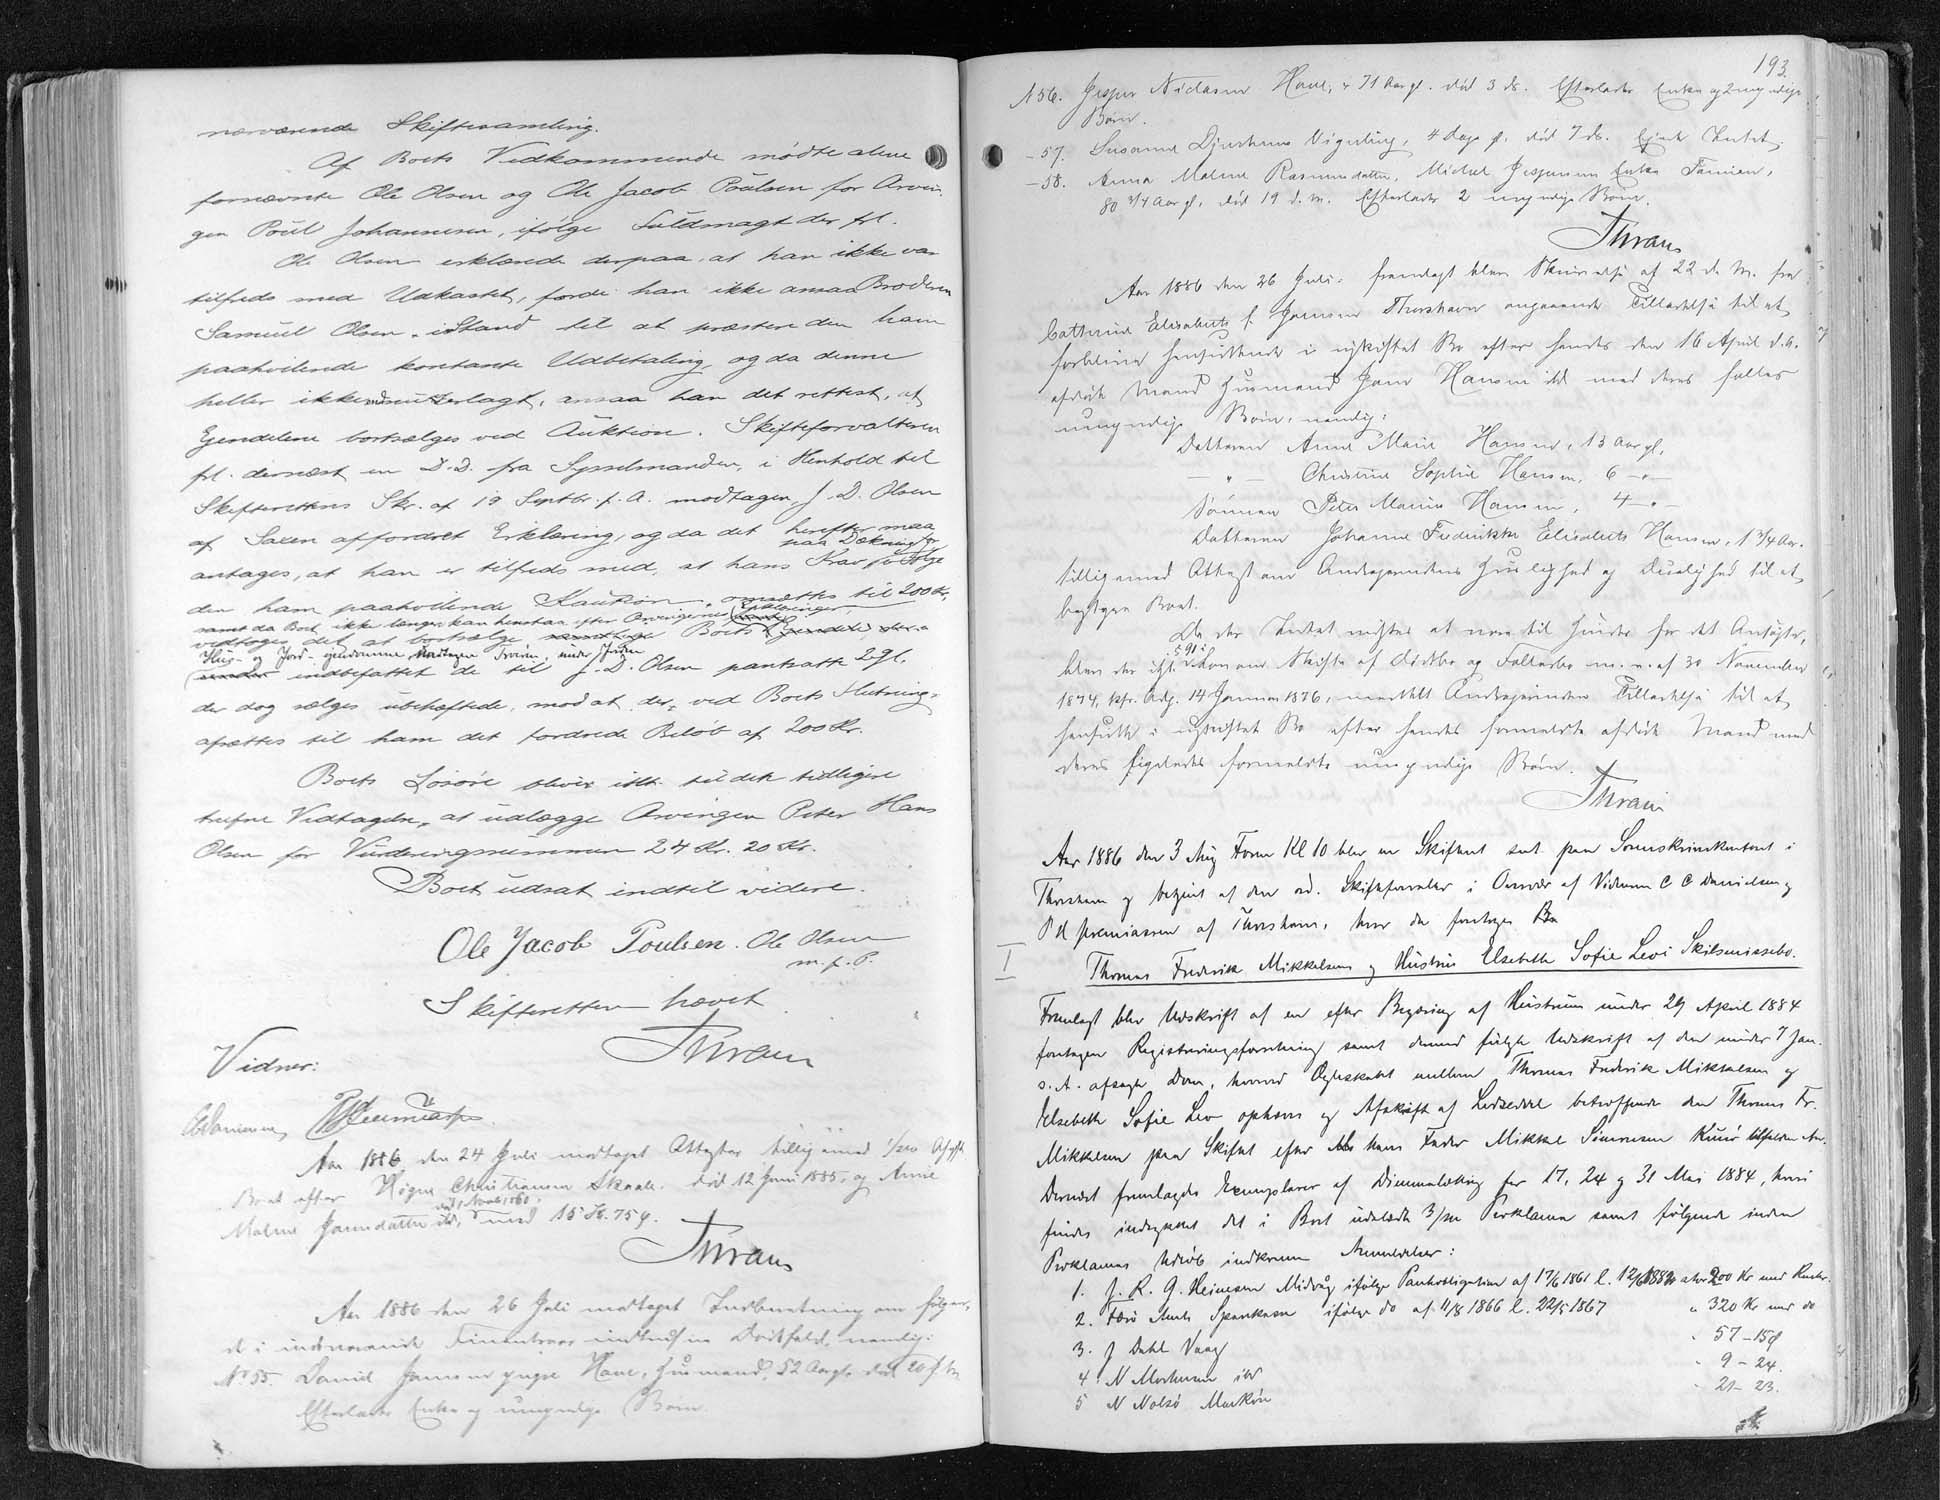 nærværende Skiftesamling.
Af Boets Vedkommende mødte alene
fornævnte Ole Olsen og Ole Jacob Poulsen for Arvin-
gen Poul Johannesen, ifølge Fuldmagt der frl.
Ole Olsen erklærede derpaa, at han ikke var
tilfreds med Udkastet, fordi han ikke ansaa Broderen
Samuel Olsen i Stand til at præstere den ham
paahvilende kontante Udbetaling, og da denne
heller ikke, ansaa han det rettest, at
Ejendelene bortsælges ved Auktion. Skifteforvalteren
frl. dernæst en D.D. fra Sysselmanden, i Henhold til
Skifterettens Skr. af 19 Septbr. f. A. modtagen, J. D. Olsen
af Saxen affordret Erklæring, og da det herefter maa
antages, at han er tilfreds med, at hans Krav paa Dækning for
den ham paahvilende Kaution, ansættes til 200 Kr,
samt da Boet ikke længer kan henstaa efter Arvingernes
vedtoges det at bortsælge Boets
Hus- og Jord- ejendomme
indbefattet de til J. D. Olsen pantsatte 2 gl.
der dog sælges ubehæftede, mod at der, ved Boets Slutning,
afsættes til ham det fordrede Beløb af 200 Kr.
Boets Løsøre bliver iflt. til dets tidligere
trufne Vedtagelse, at udlægge Arvingen Peter Hans
Olsen for Vurderingssummen 24 Kr. 20 Kr.
Boet udsat indtil videre.
Ole Jacob Poulsen. Ole Olsen
m. f. P.
Skifteretten hævet
Thran
Vidner:
CDanielsen
Aar 1886, den 24 Juli modtaget Attester tilligemed 1/200 Afgift
Boet efter Høgne Christiansen Skaale, død 12 Juni 1885, og Anne
Malene Joensdatter ibd, med 15 Kr. 75 Ø.
Thran
Aar 1886 den 26 Juli modtaget Indberetning om følgen-
de i indeværende indtrufne Dødsfald, nemlig:
No 55. Daniel Jensen yngre Hove, Husmand, 52 Aar gl., død 20 f. M.
Efterlader Enke og umyndige Børn.
193.
N 56. Jesper Niclasen Hove, 71 Aar gl. død 3 ds. Efterlader Enke og 2 myndige
Børn.
- 57. Susanne Djurhuus Vigerling, 4 Dage gl. død 7 ds. Ejede Intet.
- 58. Anna Malene Rasmusdatter, Michel Jespersens Enke Famien,
80 3/4 Aar gl. død 19 d. M. Efterlader 2 myndige Børn.
Thran
Aar 1886 den 26 Juli: fremlagt blev Skrivelse af 22 d. M. fra
Cathrine Elisabeth f. Joensen Thorshavn angaaende Tilladelse til at
forblive hensiddende i uskiftet Bo efter hendes den 16 April d. A.
afdøde Mand Husmand Joen Hansen ibd med deres fælles
umyndige Børn, nemlig:
Datteren Anne Marie Hansen, 13 Aar gl.
— " — Christine Sophie Hansen, 6 — " —
Sønnen Peter Marius Hansen, 4 — " —
Datteren Johanne Fredrikke Elisabeth Hansen, 1 3/4 Aar.
tilligemed Attest om Andragerindens Huslighed og Duelighed til at
bestyre Boet.
Da der Intet vidstes at være til Hinder for det Ansøgte,
blev der iflg. § 91 i Lov om Skifte af Dødsbo og Fællesbo m. v. af 30 November
1874, kfr. Adg. 14 Januar 1876, meddelt Andragerinden Tilladelse til at
hensidde i uskiftet Bo efter hendes formeldte afdøde Mand med
deres ligeledes formeldte umyndige Børn.
Thran
Aar 1886 den 3 Aug Form Kl 10 blev en Skifteret sat paa Sorenskriverkontoret i
Thorshavn og betjent af den ord. Skifteforvalter i Overvær af Vidnerne C C Danielsen og
P H Jeremiassen af Thorshavn, hvor da foretoges Bo
I Thomas Frederik Mikkelsens og Hustrus Elsebeth Sofie Levi Skilsmissebo.
Fremlagt blev Udskrift af en efter Begæring af Hustruen under 29 April 1884
foretagen Registreringsforretning samt dermed fulgte Udskrift af den under 7 Jan.
s. A. afsagte Dom, hvorved Ægteskabet mellem Thomas Frederik Mikkelsen og
Elsebeth Sofie Levi ophæves og Afskrift af Lodseddel betræffende den Thomas Fr.
Mikkelsen paa Skiftet efter hans Fader Mikkel Simonsen tilfaldne Arv.
Dernæst fremlagdes Exemplarer af Dimmalætting for 17, 24 og 31 Mai 1884, hvori
findes indrykket det i Boet udstedte 3/m Proklama samt følgende inden
Proklamas Udløb indkomne Anmeldelser:
1. J. R. G. Heinesen Midvåg ifølge Pantobligation af 17/6 1861 l. 12/6 stor 200 Kr med Renter.
2. Færø Amts Sparekasse ifølge do af 11/8 1866 l. 22/5 1867 " 320 Kr med do
3. J Dahl Vaag " 57 - 15 Ø
4. N Mortensen ibd " 9 - 24.
5 N Nolsø " 21 - 23.